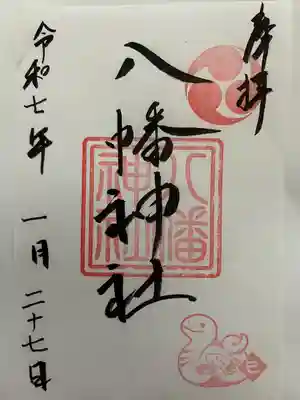 奉拝
八幡神社
八幡神社
令和七年 一月 二十七日